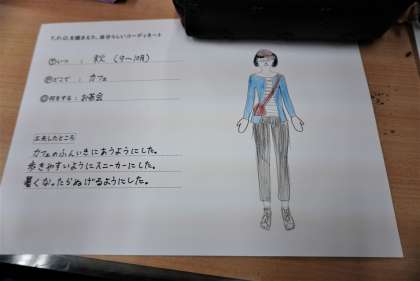 T.P.O.を踏まえた、自分らしいコーディネート
①いつ : 秋 (9〜10月)
②どこで : カフェ
③何をする : お茶会
工夫したところ
カフェのふんいきにあうようにした。
歩きやすいようにスニーカーにした。
暑くなったらぬげるようにした。